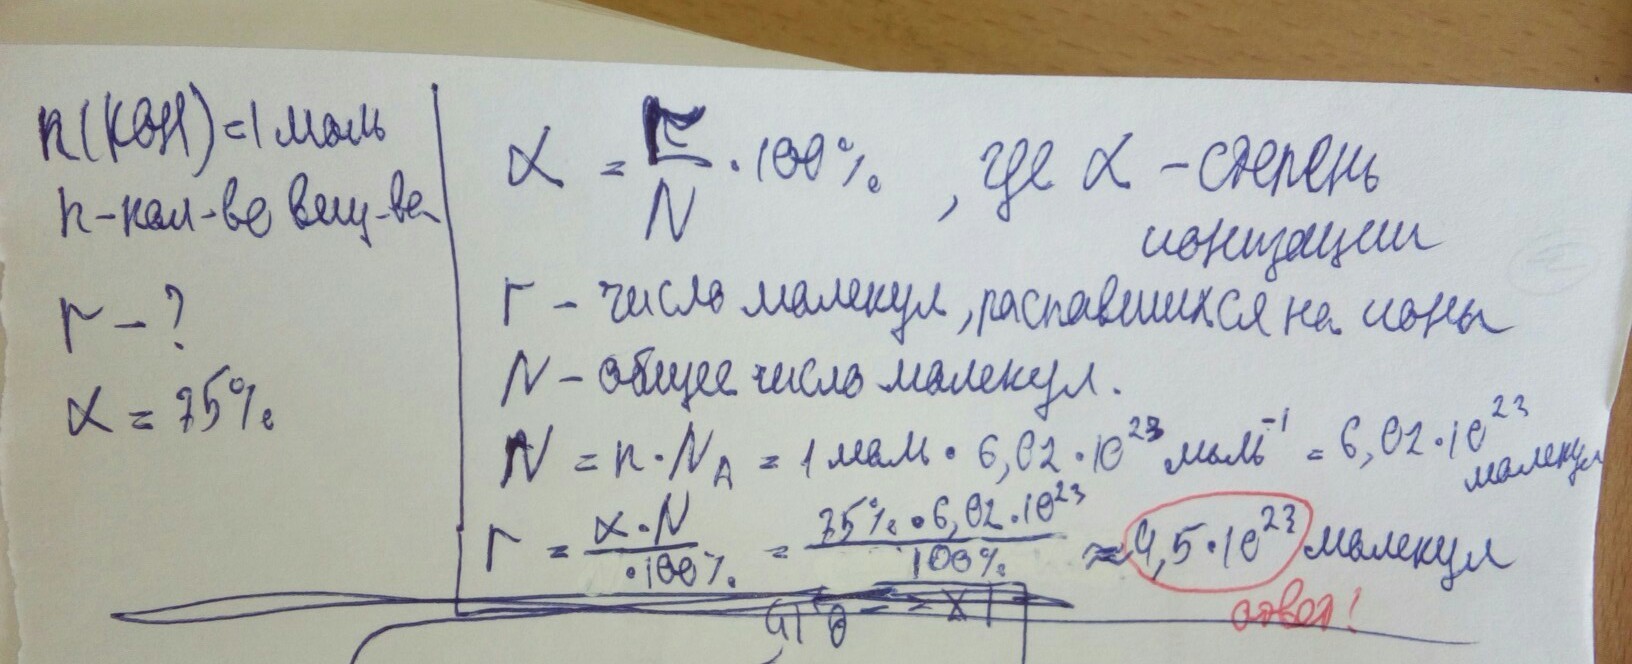 n(KOH)=1 моль
n-кол-во вещ-ва
r - ?
α = 75%
α = r/N · 100%, где α - степень
ионизации
r - число малекул, распавшихся на ионы
N - общее число малекул.
N = n · N_A = 1 моль · 6,02 · 10²³ моль⁻¹ = 6,02 · 10²³
малекул
r = α · N / · 100% = 75% · 6,02 · 10²³ / 100% ≈ 4,5 · 10²³ малекул
ответ!